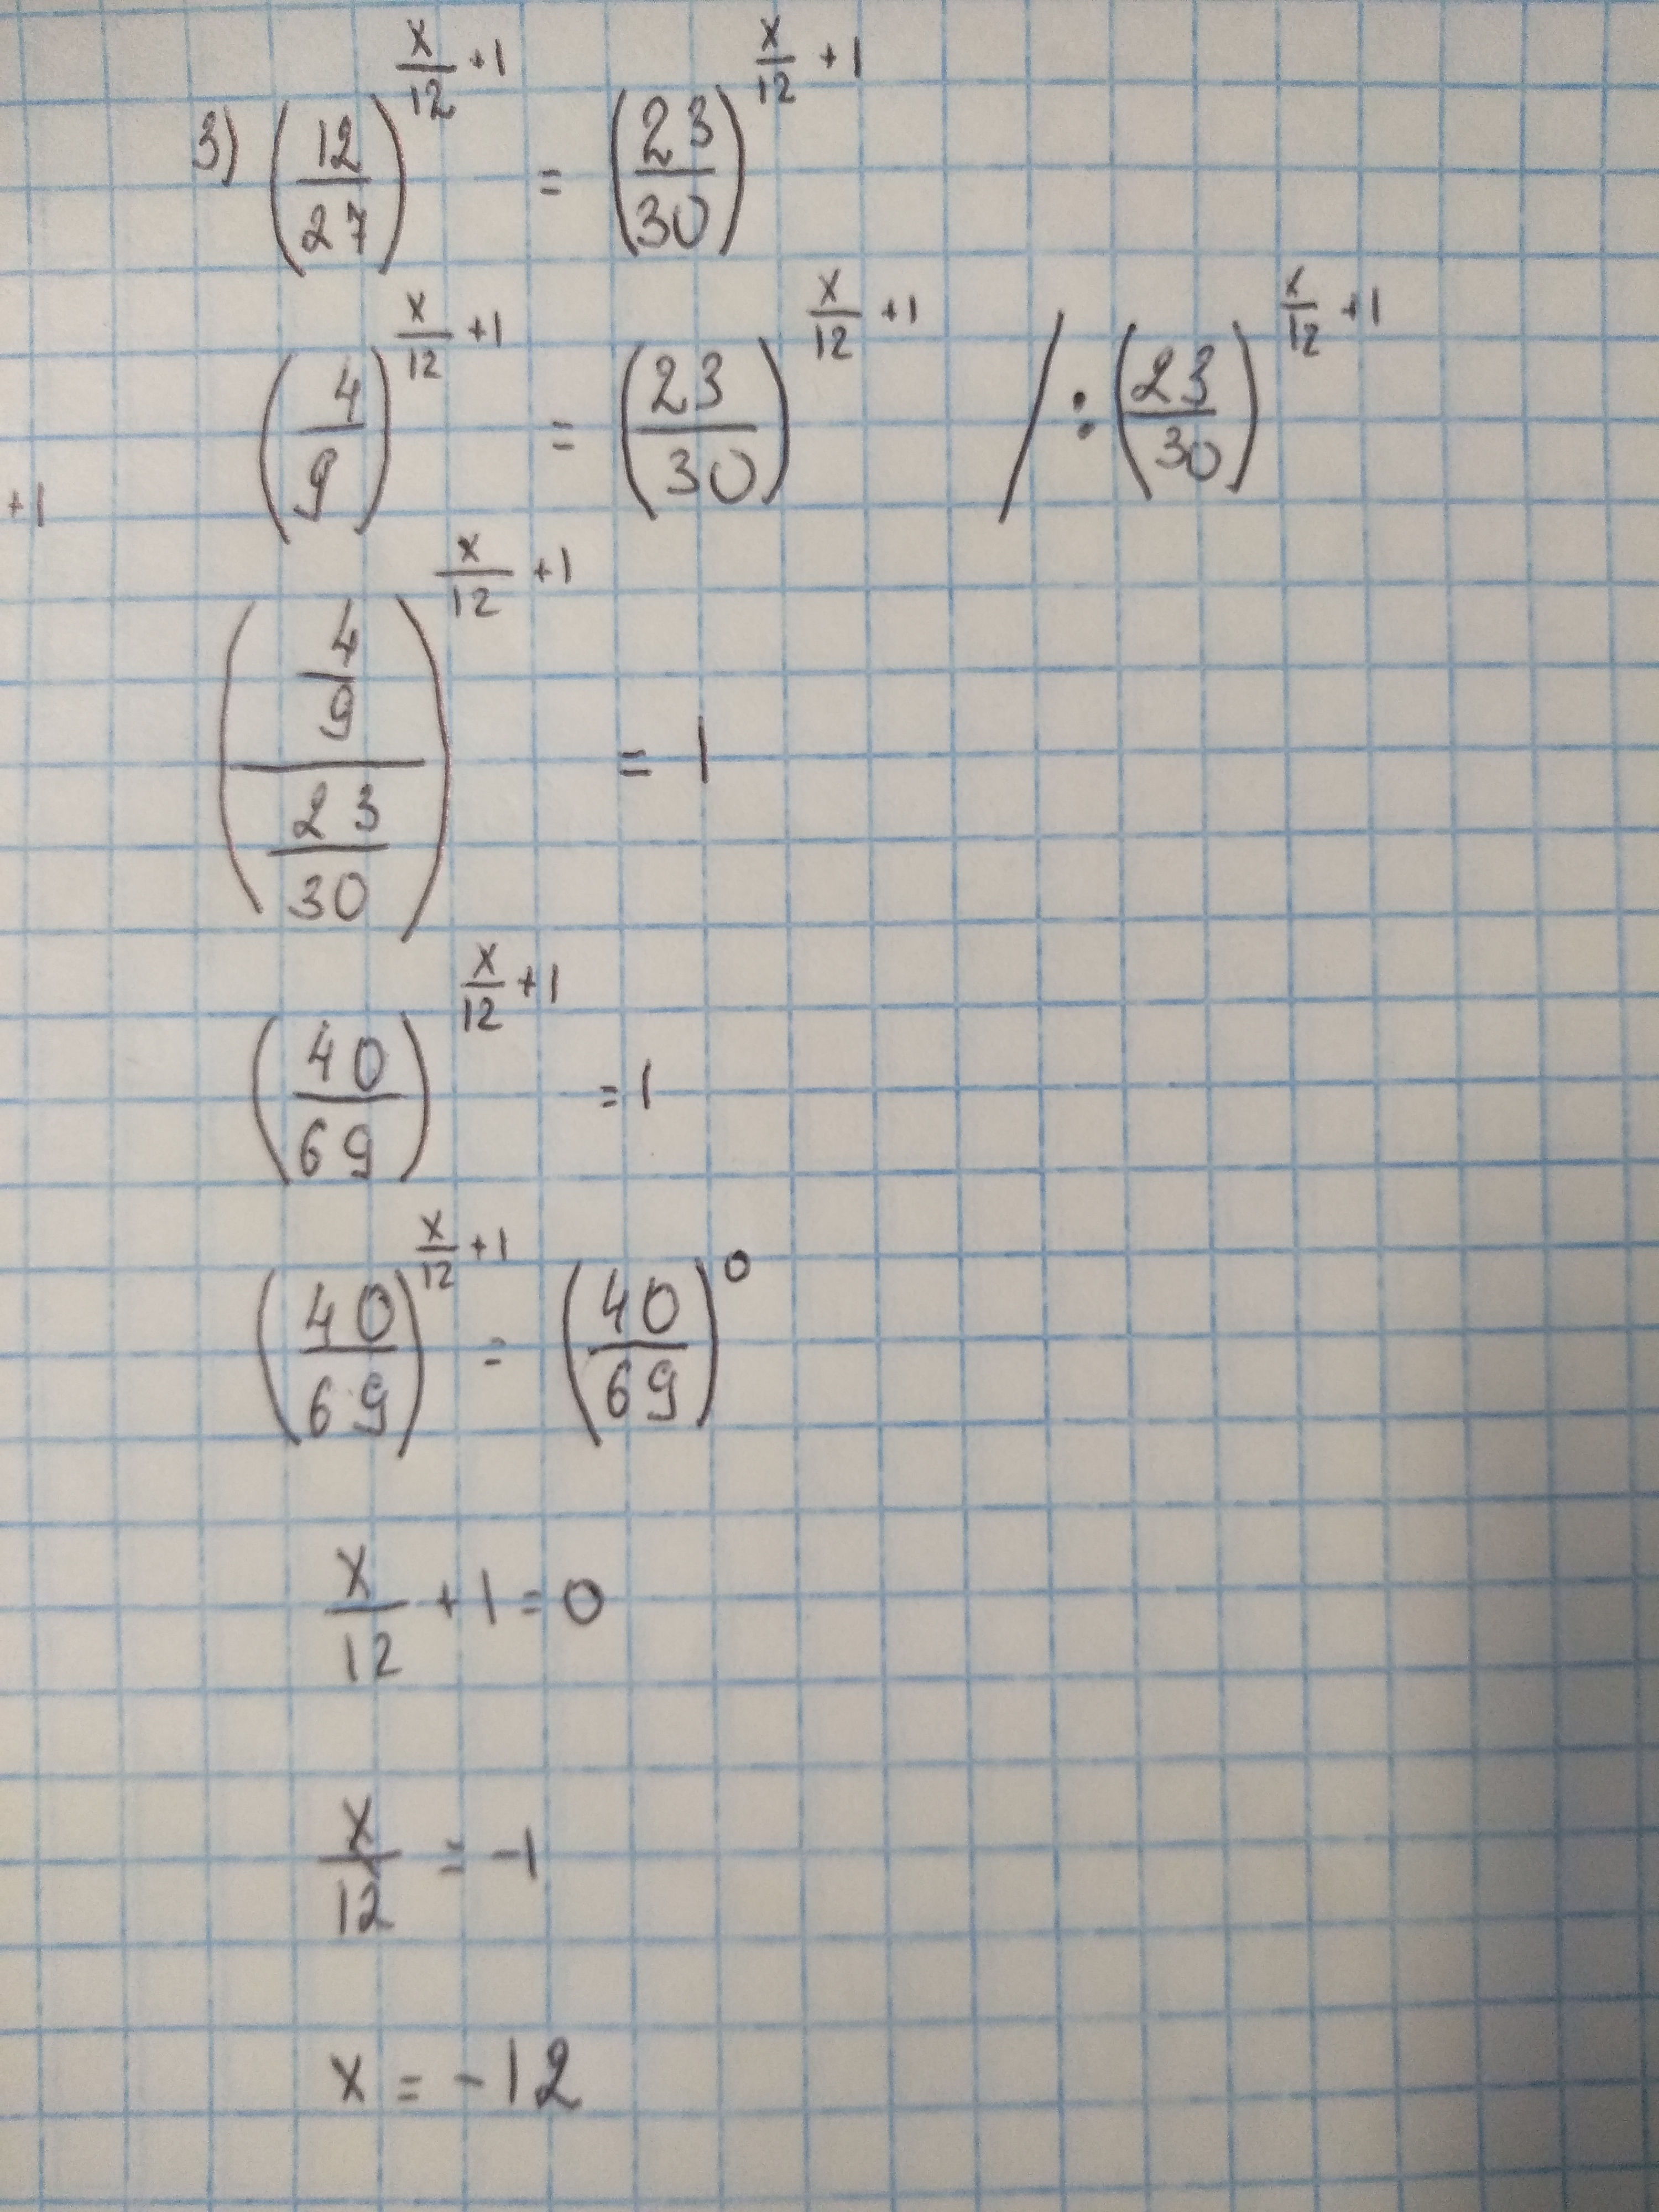 3) (12/27)^(x/12 + 1) = (23/30)^(x/12 + 1)
(4/9)^(x/12 + 1) = (23/30)^(x/12 + 1) / : (23/30)^(x/12 + 1)
+1
((4/9)/(23/30))^(x/12 + 1) = 1
(40/69)^(x/12 + 1) = 1
(40/69)^(x/12 + 1) = (40/69)^0
x/12 + 1 = 0
x/12 = -1
x = -12